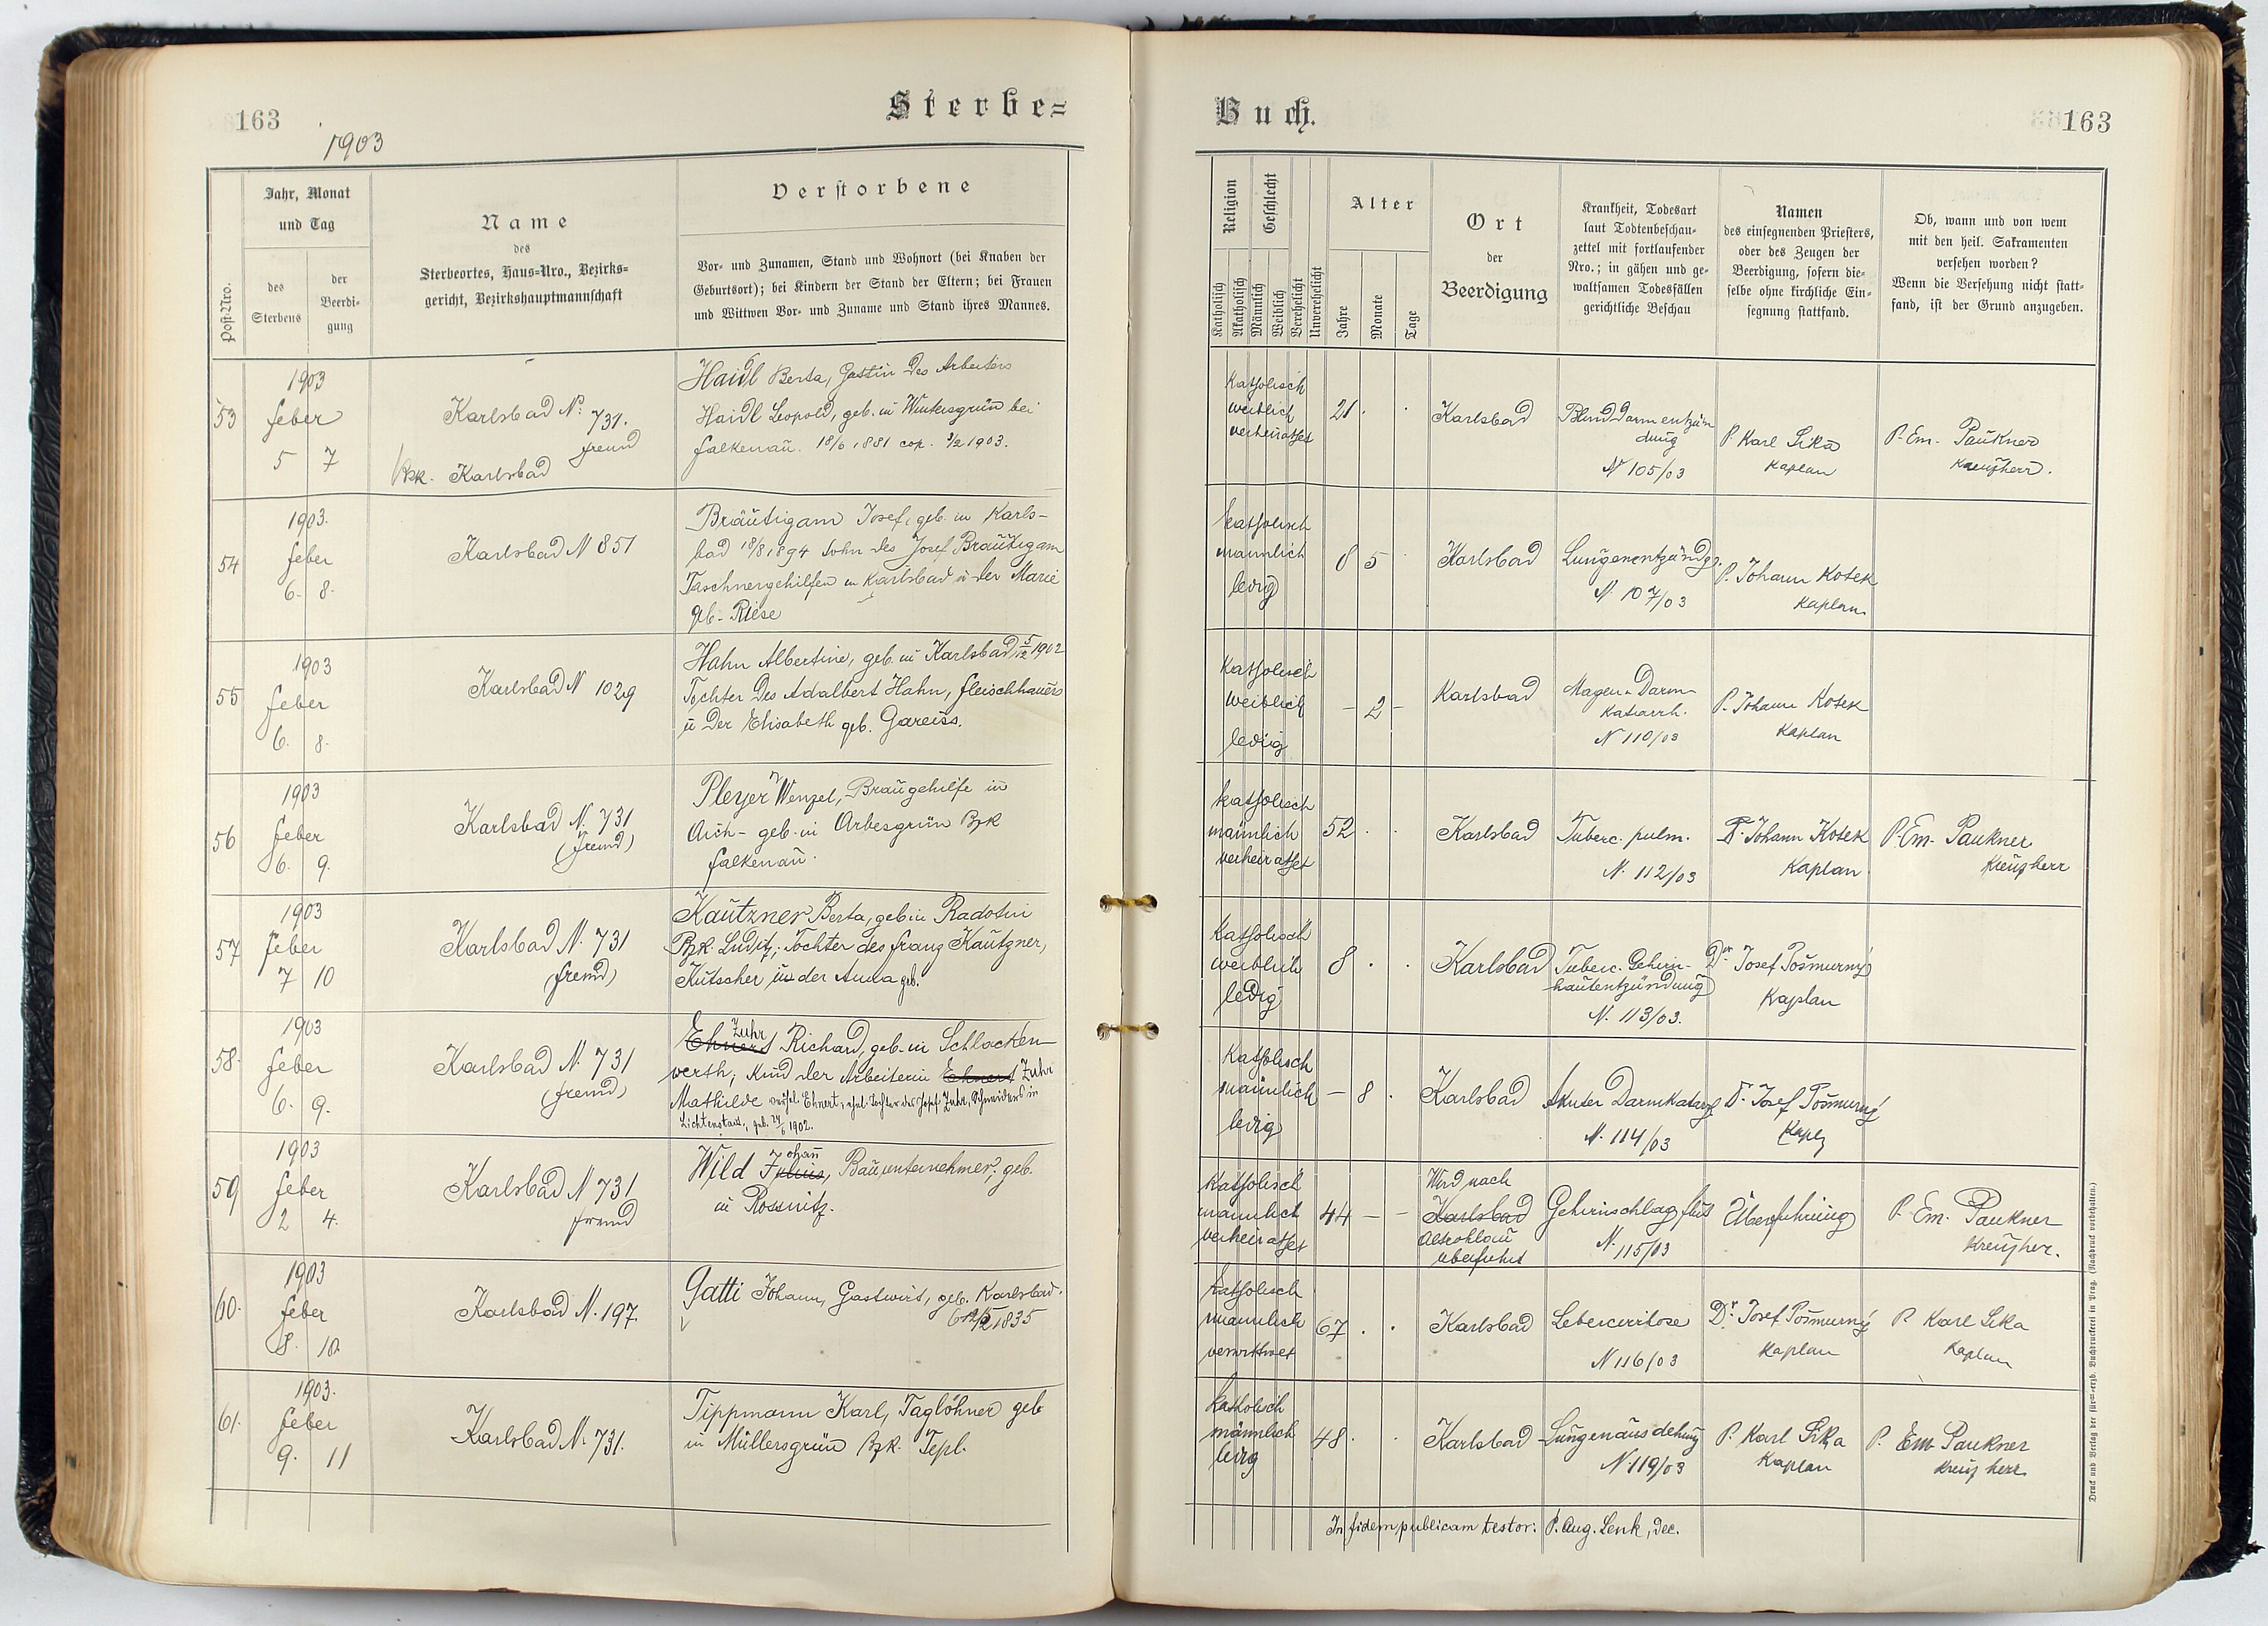 163
1903
Sterbe=
Post-Nro.
Jahr, Monat
und Tag
des
Sterbens
der
Beerdi-
gung
Name
des
Sterbeortes, Haus-Nro., Bezirks-
gericht, Bezirkshauptmannschaft
Verstorbene
Vor- und Zunamen, Stand und Wohnort (bei Knaben der
Geburtsort); bei Kindern der Stand der Eltern; bei Frauen
und Wittwen Vor- und Zuname und Stand ihres Mannes.
53
1903
feber
5 7
Karlsbad N: 731.
fremd
Bzk. Karlsbad
Haidl Berta, Gattin des Arbeiters
Haidl Leopold, geb. in Wintersgrün bei
Falkenau. 18/6 1881 cop. 3/2 1903.
54
1903.
feber
6. 8.
Karlsbad N 851
Bräutigam Josef, geb. in Karls-
bad 18/8 1894 Sohn des Josef Bräutigam
Taschnergehilfen in Karlsbad u der Marie
geb. Riese
55
1903
feber
6. 8.
Karlsbad N 1029
Hahn Albertine, geb. in Karlsbad 5/12 1902
Tochter des Adalbert Hahn, Fleischhauers
u der Elisabeth geb. Gareiss.
56
1903
feber
6. 9.
Karlsbad N. 731
(fremd)
Pleyer Wenzel, Braugehilfe in
Aich - geb. in Arbesgrün Bzk
Falkenau.
57
1903
feber
7 10
Karlsbad N. 731
(fremd)
Kautzner Berta, geb in Radotin
Bzk Luditz; Tochter des Franz Kautzner,
Kutscher u der Anna geb.
58.
1903
feber
6. 9.
Karlsbad N. 731
(fremd)
Zuhr
Ehnert Richard, geb. in Schlacken-
werth; Kind der Arbeiterin Ehnert Zuhr
Mathilde verehel. Ehnert, ehel. Tochter des Josef Zuhr, Schneiders in
Lichtenstadt, geb. 24/6 1902.
59
1903
feber
2 4.
Karlsbad N 731
fremd
ohann
Wild Julius, Bauunternehmer, geb.
in Rossnitz.
60.
1903
feber
8. 10.
Karlsbad N. 197.
Gatti Johann, Gastwirt, geb. Karlsbad.
1835
61.
1903.
feber
9. 11
Karlsbad N. 731.
Tippmann Karl, Taglöhner geb
in Müllersgrün Bzk. Tepl.
Buch.
163
Religion
Geschlecht
Katholisch
Akatholisch
Männlich
Weiblich
Verehelicht
Unverehelicht
Alter
Jahre
Monate
Tage
Ort
der
Beerdigung
Krankheit, Todesart
laut Todtenbeschau-
zettel mit fortlaufender
Nro.; in gähen und ge-
waltsamen Todesfällen
gerichtliche Beschau
Namen
des einsegnenden Priesters,
oder des Zeugen der
Beerdigung, sofern die-
selbe ohne kirchliche Ein-
segnung stattfand.
Ob, wann und von wem
mit den heil. Sakramenten
versehen worden?
Wenn die Versehung nicht statt-
fand, ist der Grund anzugeben.
katholisch
weiblich
verheirathet
21 . .
Karlsbad
Blinddarmentzün
dung
N 105/03
P. Karl Sika
Kaplan
P. Em. Paukner
Kreuzherr.
katholisch
männlich
ledig
8 5 .
Karlsbad
Lungenentzündg.
N. 107/03
P. Johann Kotek
Kaplan
katholisch
weiblich
ledig
- 2 -
Karlsbad
Magen u Darm-
katarrh.
N 110/03
P. Johann Kotek
Kaplan
katholisch
männlich
verheirathet
52 . .
Karlsbad
Tuberc. pulm.
N. 112/03
P. Johann Kotek
Kaplan
P. Em. Paukner
Kreuzherr
katholisch
weiblich
ledig
8 . .
Karlsbad
Tuberc. Gehirn-
hautentzündung
N. 113/03.
Dr Josef Pošmurný
Kaplan
katholisch
männlich
ledig
- 8 .
Karlsbad
Akuter Darmkatarrh
N. 114/03
Dr. Josef Pošmurný
Kapl
katholisch
männlich
verheirathet
44 - -
Wird nach
Karlsbad
Altrohlau
überführt
Gehirnschlagfluss
N. 115/03
Überführung
P. Em. Paukner
Kreuzher.
katholisch
männlich
verwittwet
67 . .
Karlsbad
Lebercirrhose
N 116/03
Dr. Josef Pošmurný
Kaplan
P. Karl Sika
Kaplan
katholisch
männlich
ledig
48 . .
Karlsbad
Lungenausdehnung
N. 119/03
P. Karl Sika
Kaplan
P. Em Paukner
Kreuzherr
In fidem publicam testor: P. Aug. Lenk, dec.
Druck und Verlag der fürst-erzb. Buchdruckerei in Prag. (Nachdruck vorbehalten.)